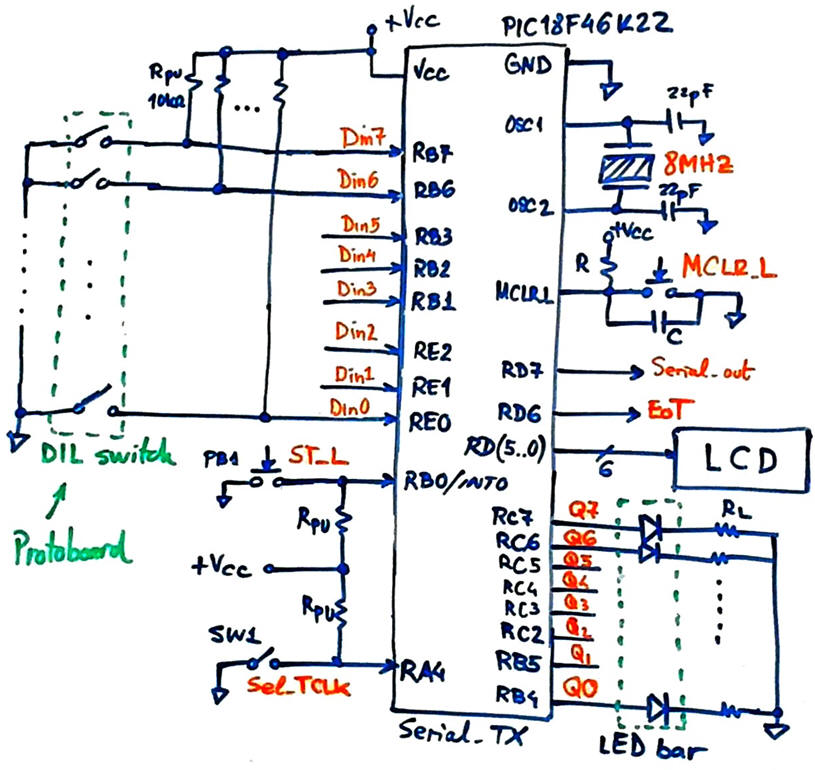 +Vcc
PIC18F46K22
Vcc
GND
Rpu
10kΩ
...
22pF
OSC1
8MHz
22pF
OSC2
Din7
RB7
Din6
RB6
Din5
RB3
Din4
RB2
Din3
RB1
Din2
RE2
Din1
RE1
Din0
RE0
+Vcc
R
MCLR_L
MCLR_L
C
RD7
Serial_out
RD6
EoT
RD(5..0)
6
LCD
DIL switch
Protoboard
PB1
ST_L
RB0/INT0
Rpu
+Vcc
Rpu
SW1
Sel_TCLK
RA4
RC7
Q7
RL
RC6
Q6
RC5
Q5
RC4
Q4
RC3
Q3
RC2
Q2
RB5
Q1
RB4
Q0
Serial_TX
LED bar